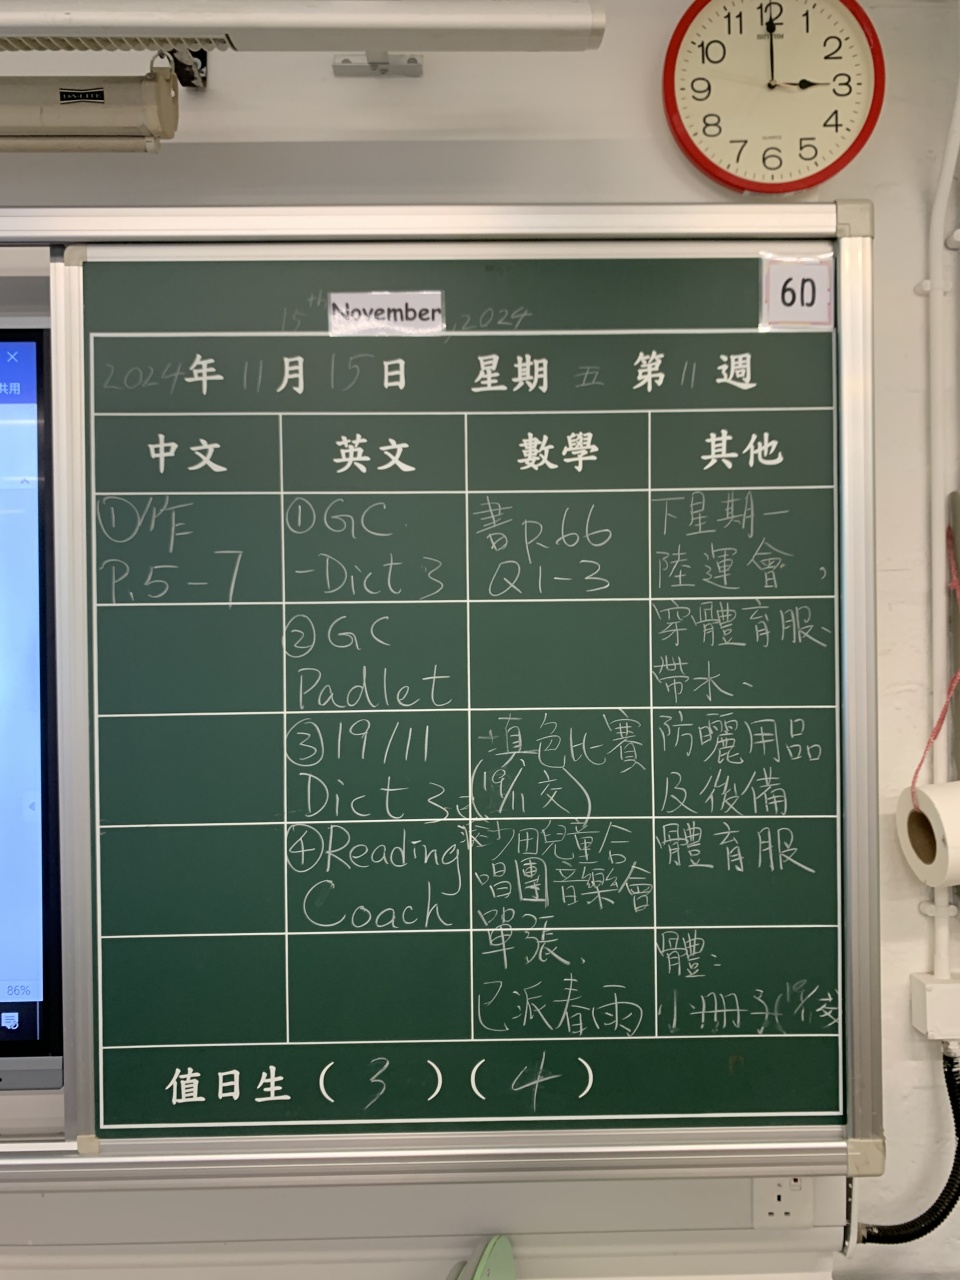 12
11
1
10
2
9
3
8
4
7
5
6
60
15th November, 2024
2024年 11月 15日 星期五 第11週
中文 英文 數學 其他
①作
P.5-7
①GC
-Dict 3
書P.66
Q1-3
下星期一
陸運會,
②GC
Padlet
穿體育服、
帶水、
③19/11
Dict 3
填色比賽
(19/11交)
防曬用品
及後備
④Reading
Coach
少田兒童合
唱團音樂會
體育服
單張、
已派春雨
體:
小冊子(19/11交
值日生(3)(4)
共用
86%